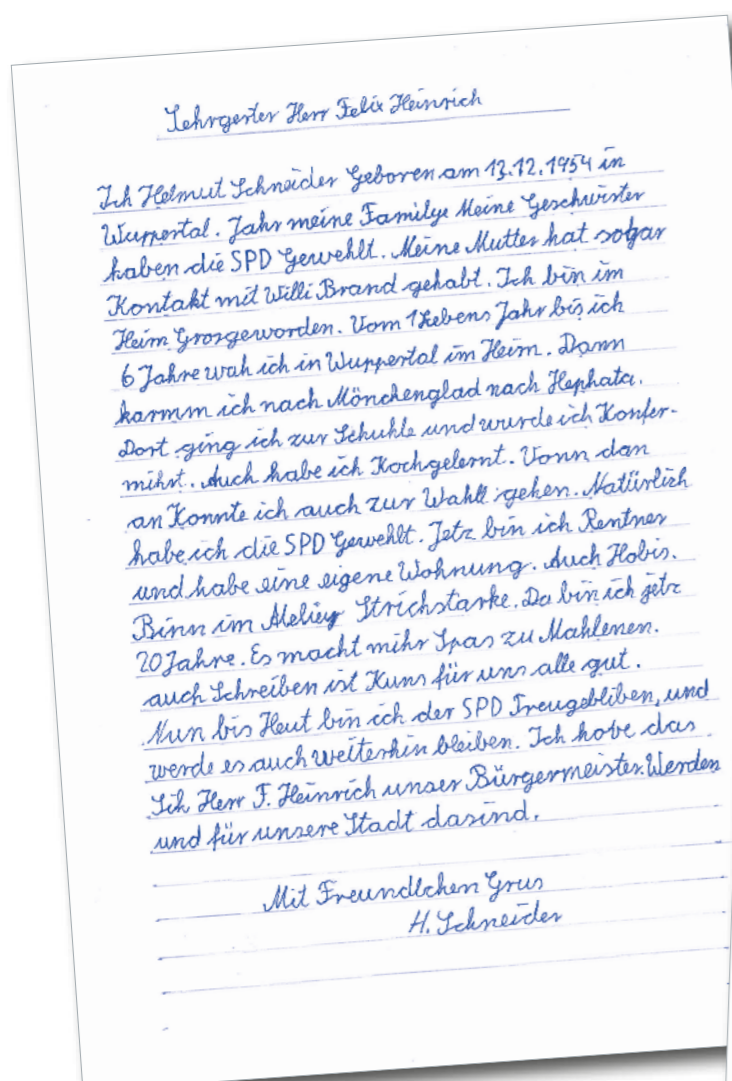 Sehrgerter Herr Felix Heinrich
Ich Helmut Schneider Geboren am 13.12.1954 in
Wuppertal. Jahr meine Familye Meine Geschwister
haben die SPD Gewehlt. Meine Mutter hat sogar
Kontakt mit Willi Brand gehabt. Ich bin im
Heim Grosgeworden. Vom 1 Lebens Jahr bis ich
6 Jahre wah ich in Wuppertal im Heim. Dann
kamm ich nach Mönchenglad nach Hephata.
Dort ging ich zur Schuhle und wurde ich Konfer-
mihrt. Auch habe ich Kochgelernt. Vonn dan
an Konnte ich auch zur Wahll gehen. Natürlich
habe ich die SPD Gewehlt. Jetz bin ich Rentner
und habe eine eigene Wohnung. Auch Hobis.
Binn im Strichstarke. Da bin ich jetz
20 Jahre. Es macht mihr Spas zu Mahlenen.
auch Schreiben ist Kuns für uns alle gut.
Nun bis Heut bin ich der SPD Treugebliben, und
werde es auch weiterhin bleiben. Ich hobe das
Sih Herr F. Heinrich unser Bürgermeister Werden
und für unsere Stadt dasind.
Mit Freundlchen Grus
H. Schneider